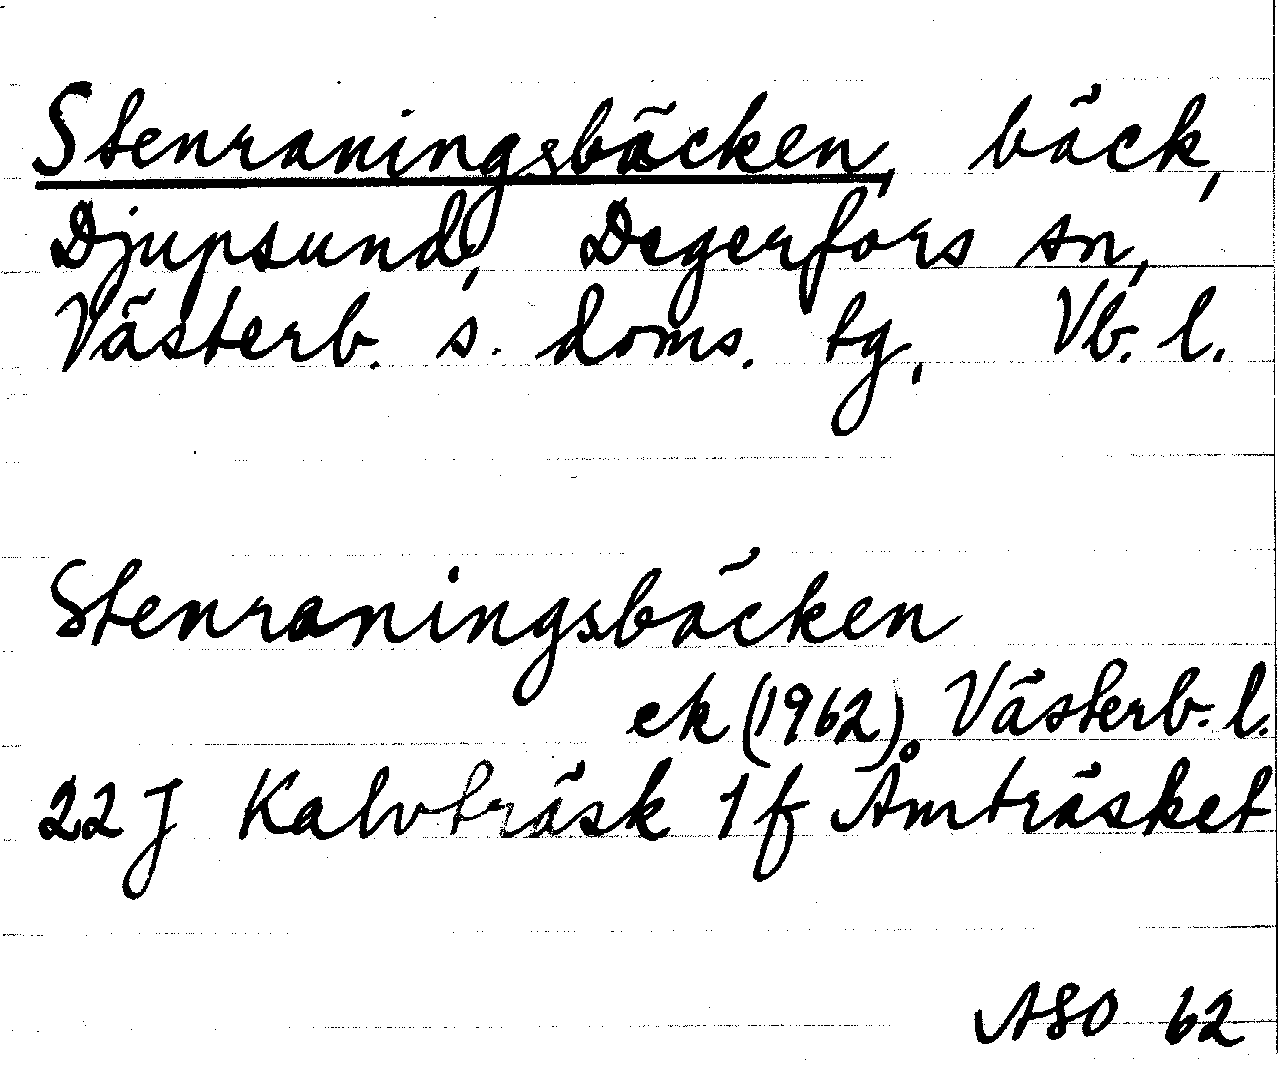 Stenraningsbäcken, bäck,
Djupsund, Degerfors sn,
Västerb. s. doms. tg, Vb. l.
Stenraningsbäcken
ek (1962). Västerb. l.
22 J Kalvträsk 1 f Åmträsket
ASO 62